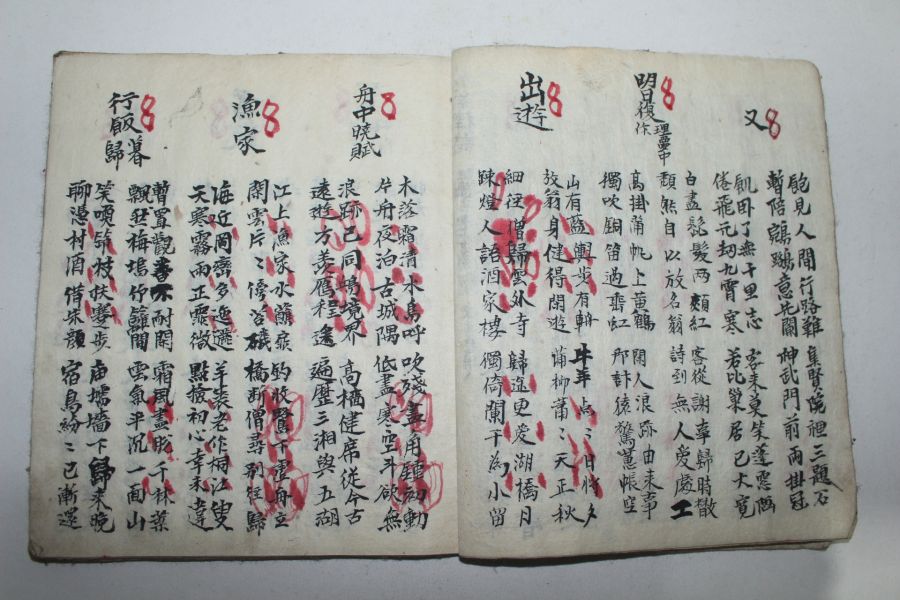 又
8
飽見人間行路難 集賢院裡三題名
暫陪鵷鷺意先闌 神武門前兩掛冠
飢臥了無千里志 客来莫笑蓬窓陋
倦飛元刼九霄寒 若比巢居已大寬
明日復作理夢中
8
白盡髭髮兩頰紅 客從謝事歸時散
頹然自以放名翁 詩到無人愛處工
高掛蒲帆上黃鶴 閑人浪跡由来事
獨吹銅笛過垂虹 那計猿驚蕙帳空
出遊
8
山有藍輿步有 牛羊点〻日將夕
放翁身健得閑遊 蒲柳蕭〻天正秋
細徑僧歸雲外寺 歸途更愛湖橋月
踈燈人語酒家樓 獨倚闌干為小留
舟中曉賦
8
木落霜清水鳥呼 吹殘畫角初動
片舟夜泊古城隅 低盡寒空斗欲無
浪跡已同境界 高檣健席從今古
遠遊方羨鴈程途 遍歷三湘與五湖
漁家
8
江上漁家水蘸扉 釣收鷺下虛舟立
閑雲片〻傍苔磯 橋斷僧尋別徑歸
海近岡巒多 羊裘老作桐江叟
天寒霧雨正霏微 點撿初心幸未違
行飯暮歸
8
暫置觀書不耐閑 霜風盡脫千林葉
飄然梅塢竹籬間 雲氣半沉一面山
笑枝扶蹇步 庙壖墻下歸来晚
聊憑村酒借朱顏 宿鳥紛〻已漸還